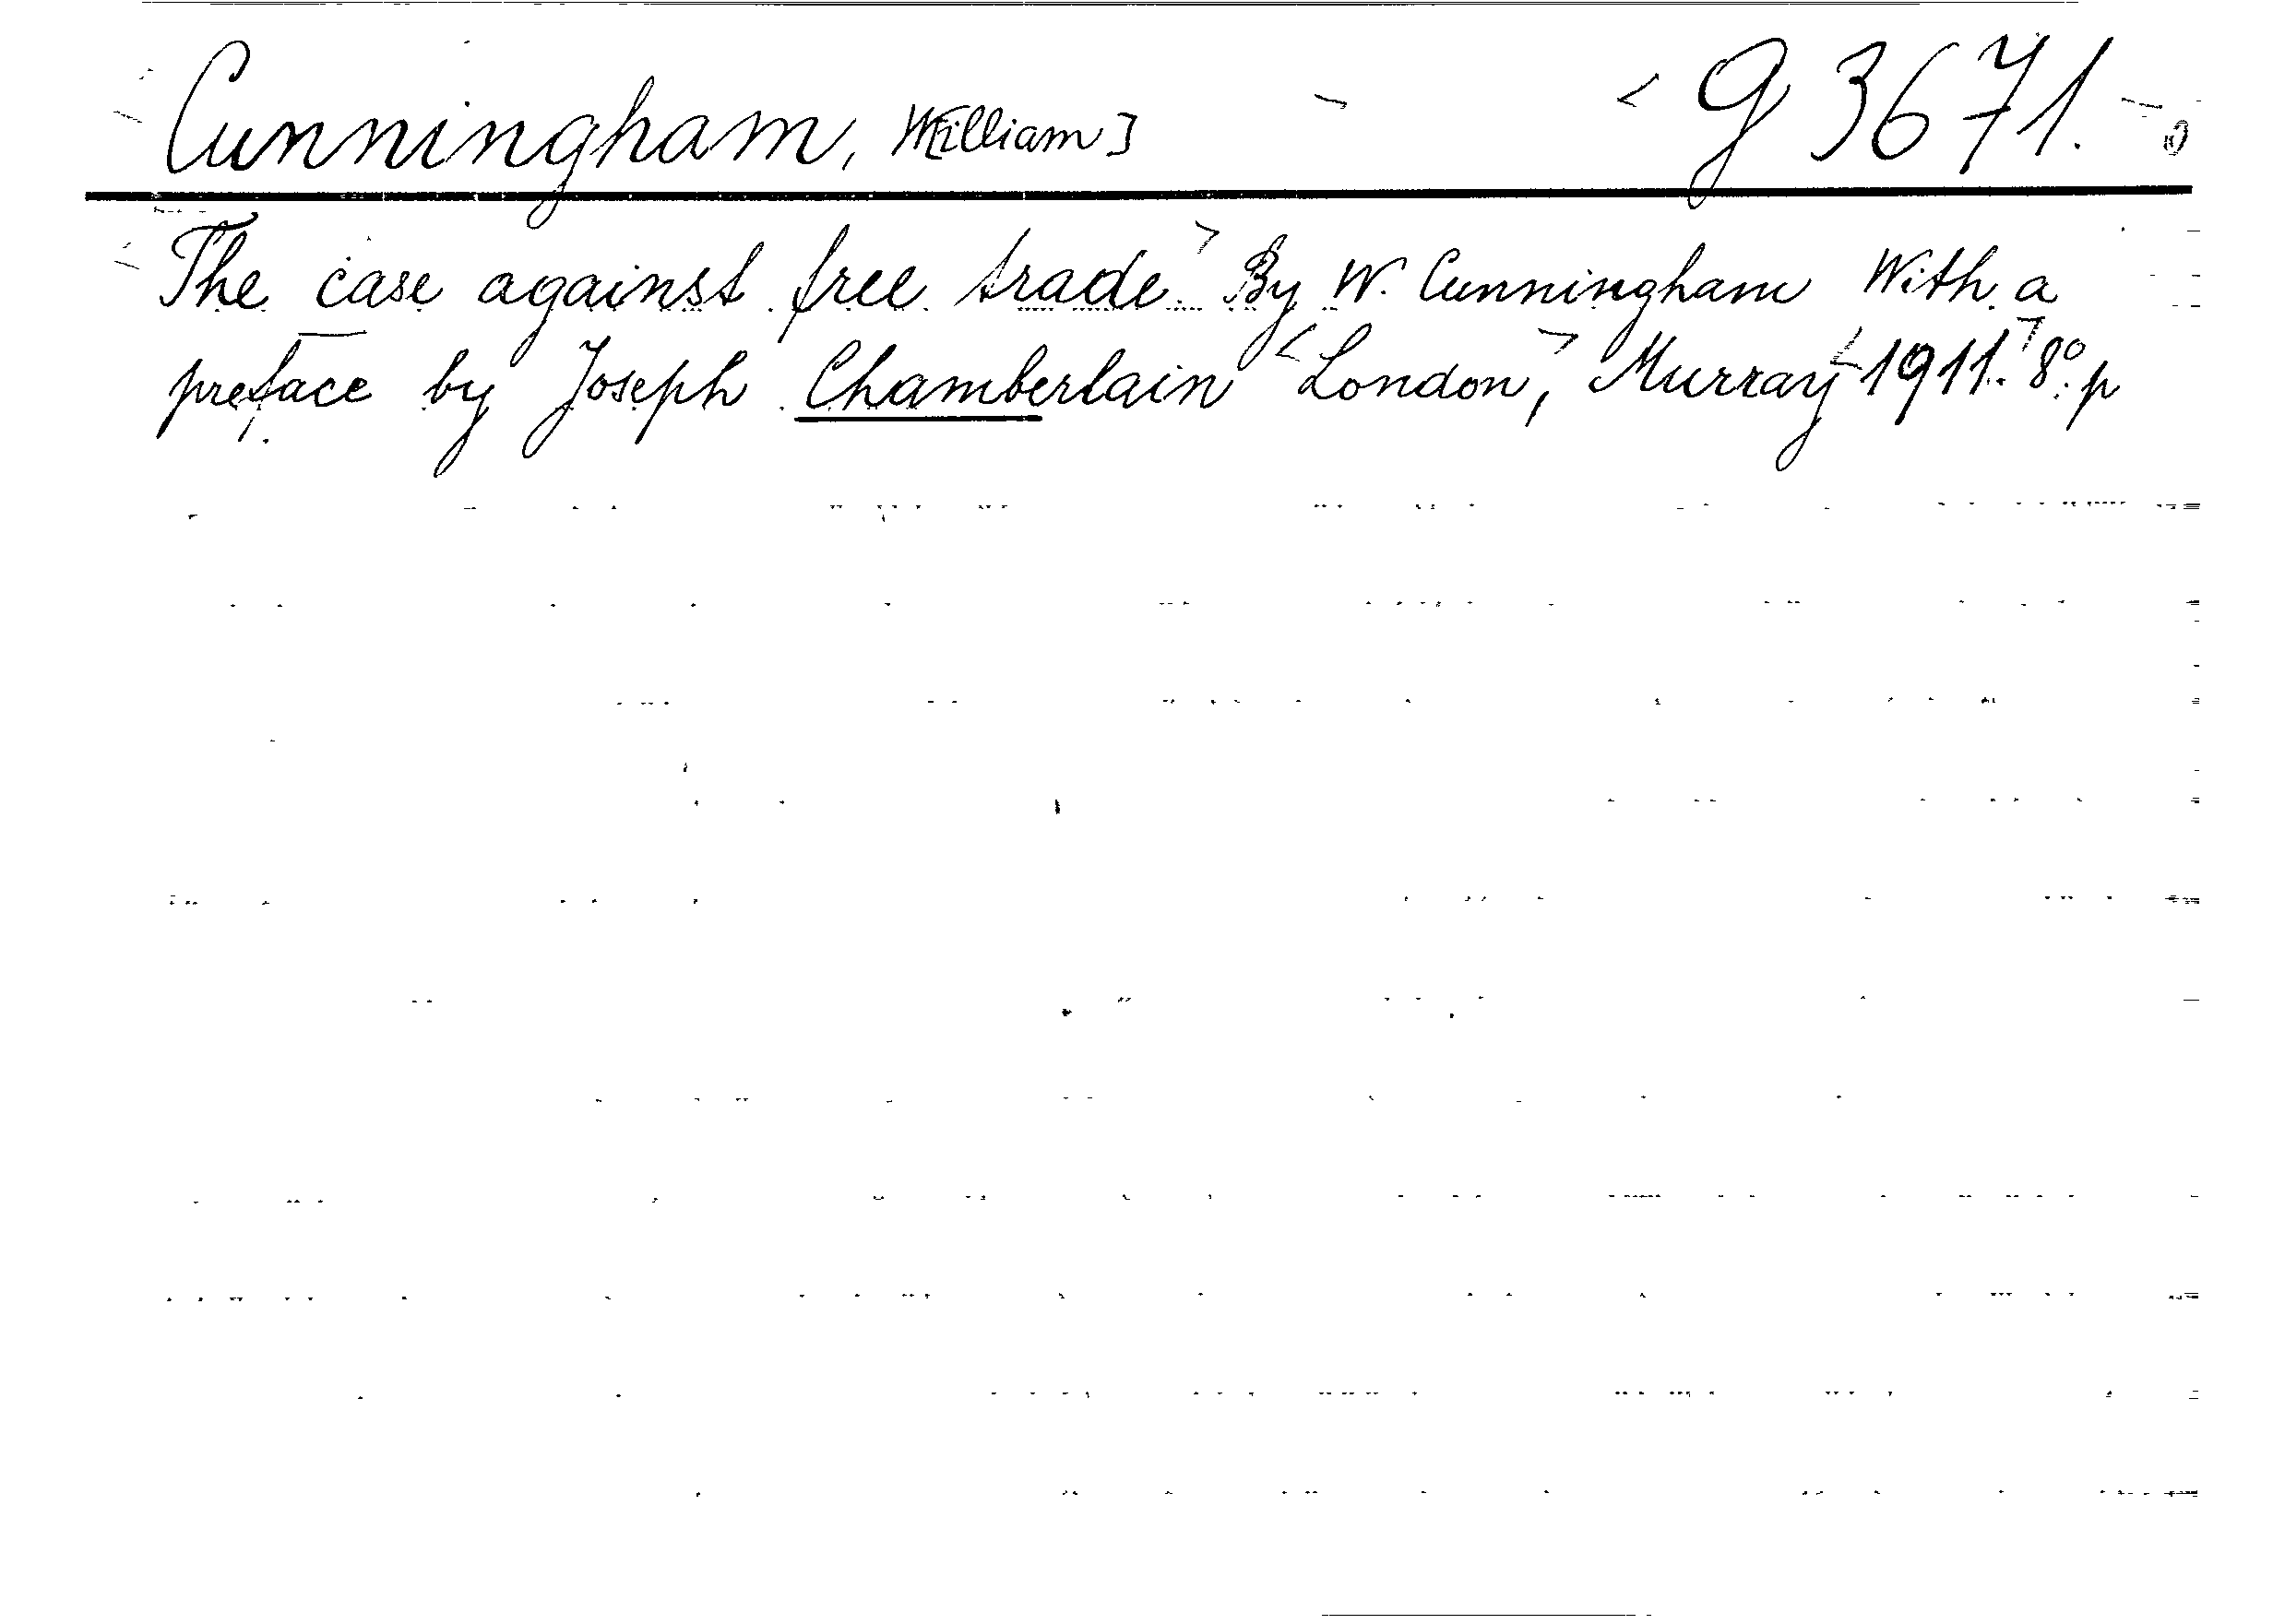 Cunningham, W[illiam] G 3671.
The case against free trade. By W. Cunningham With a
preface by Joseph Chamberlain London, Murray 1911. 8°. p